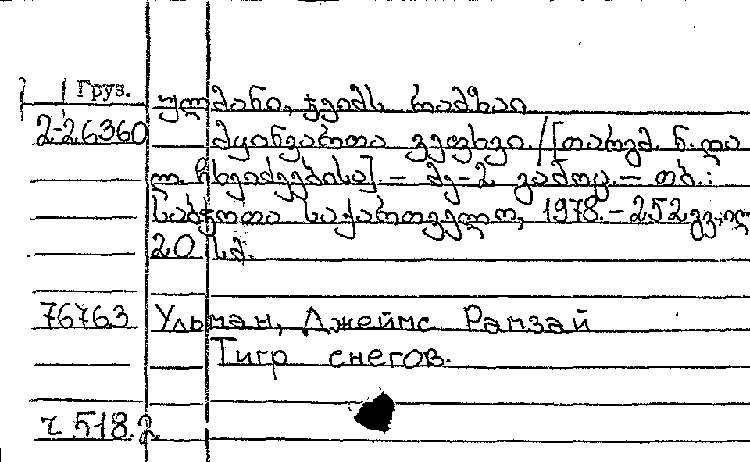 Груз.
ულმანი, ჯეიმს რამზაი
2-26360 მყინვართა ვეფხვი. /[თარგმ. ნ. და
ლ. ჩხეიძეებისა]. – მე-2 გამოც. – თბ.:
საბჭოთა საქართველო, 1978. – 252 გვ.; ილ
20 სმ.
76763 Ульман, Джеймс Рамзай
Тигр снегов.
ч 518.2